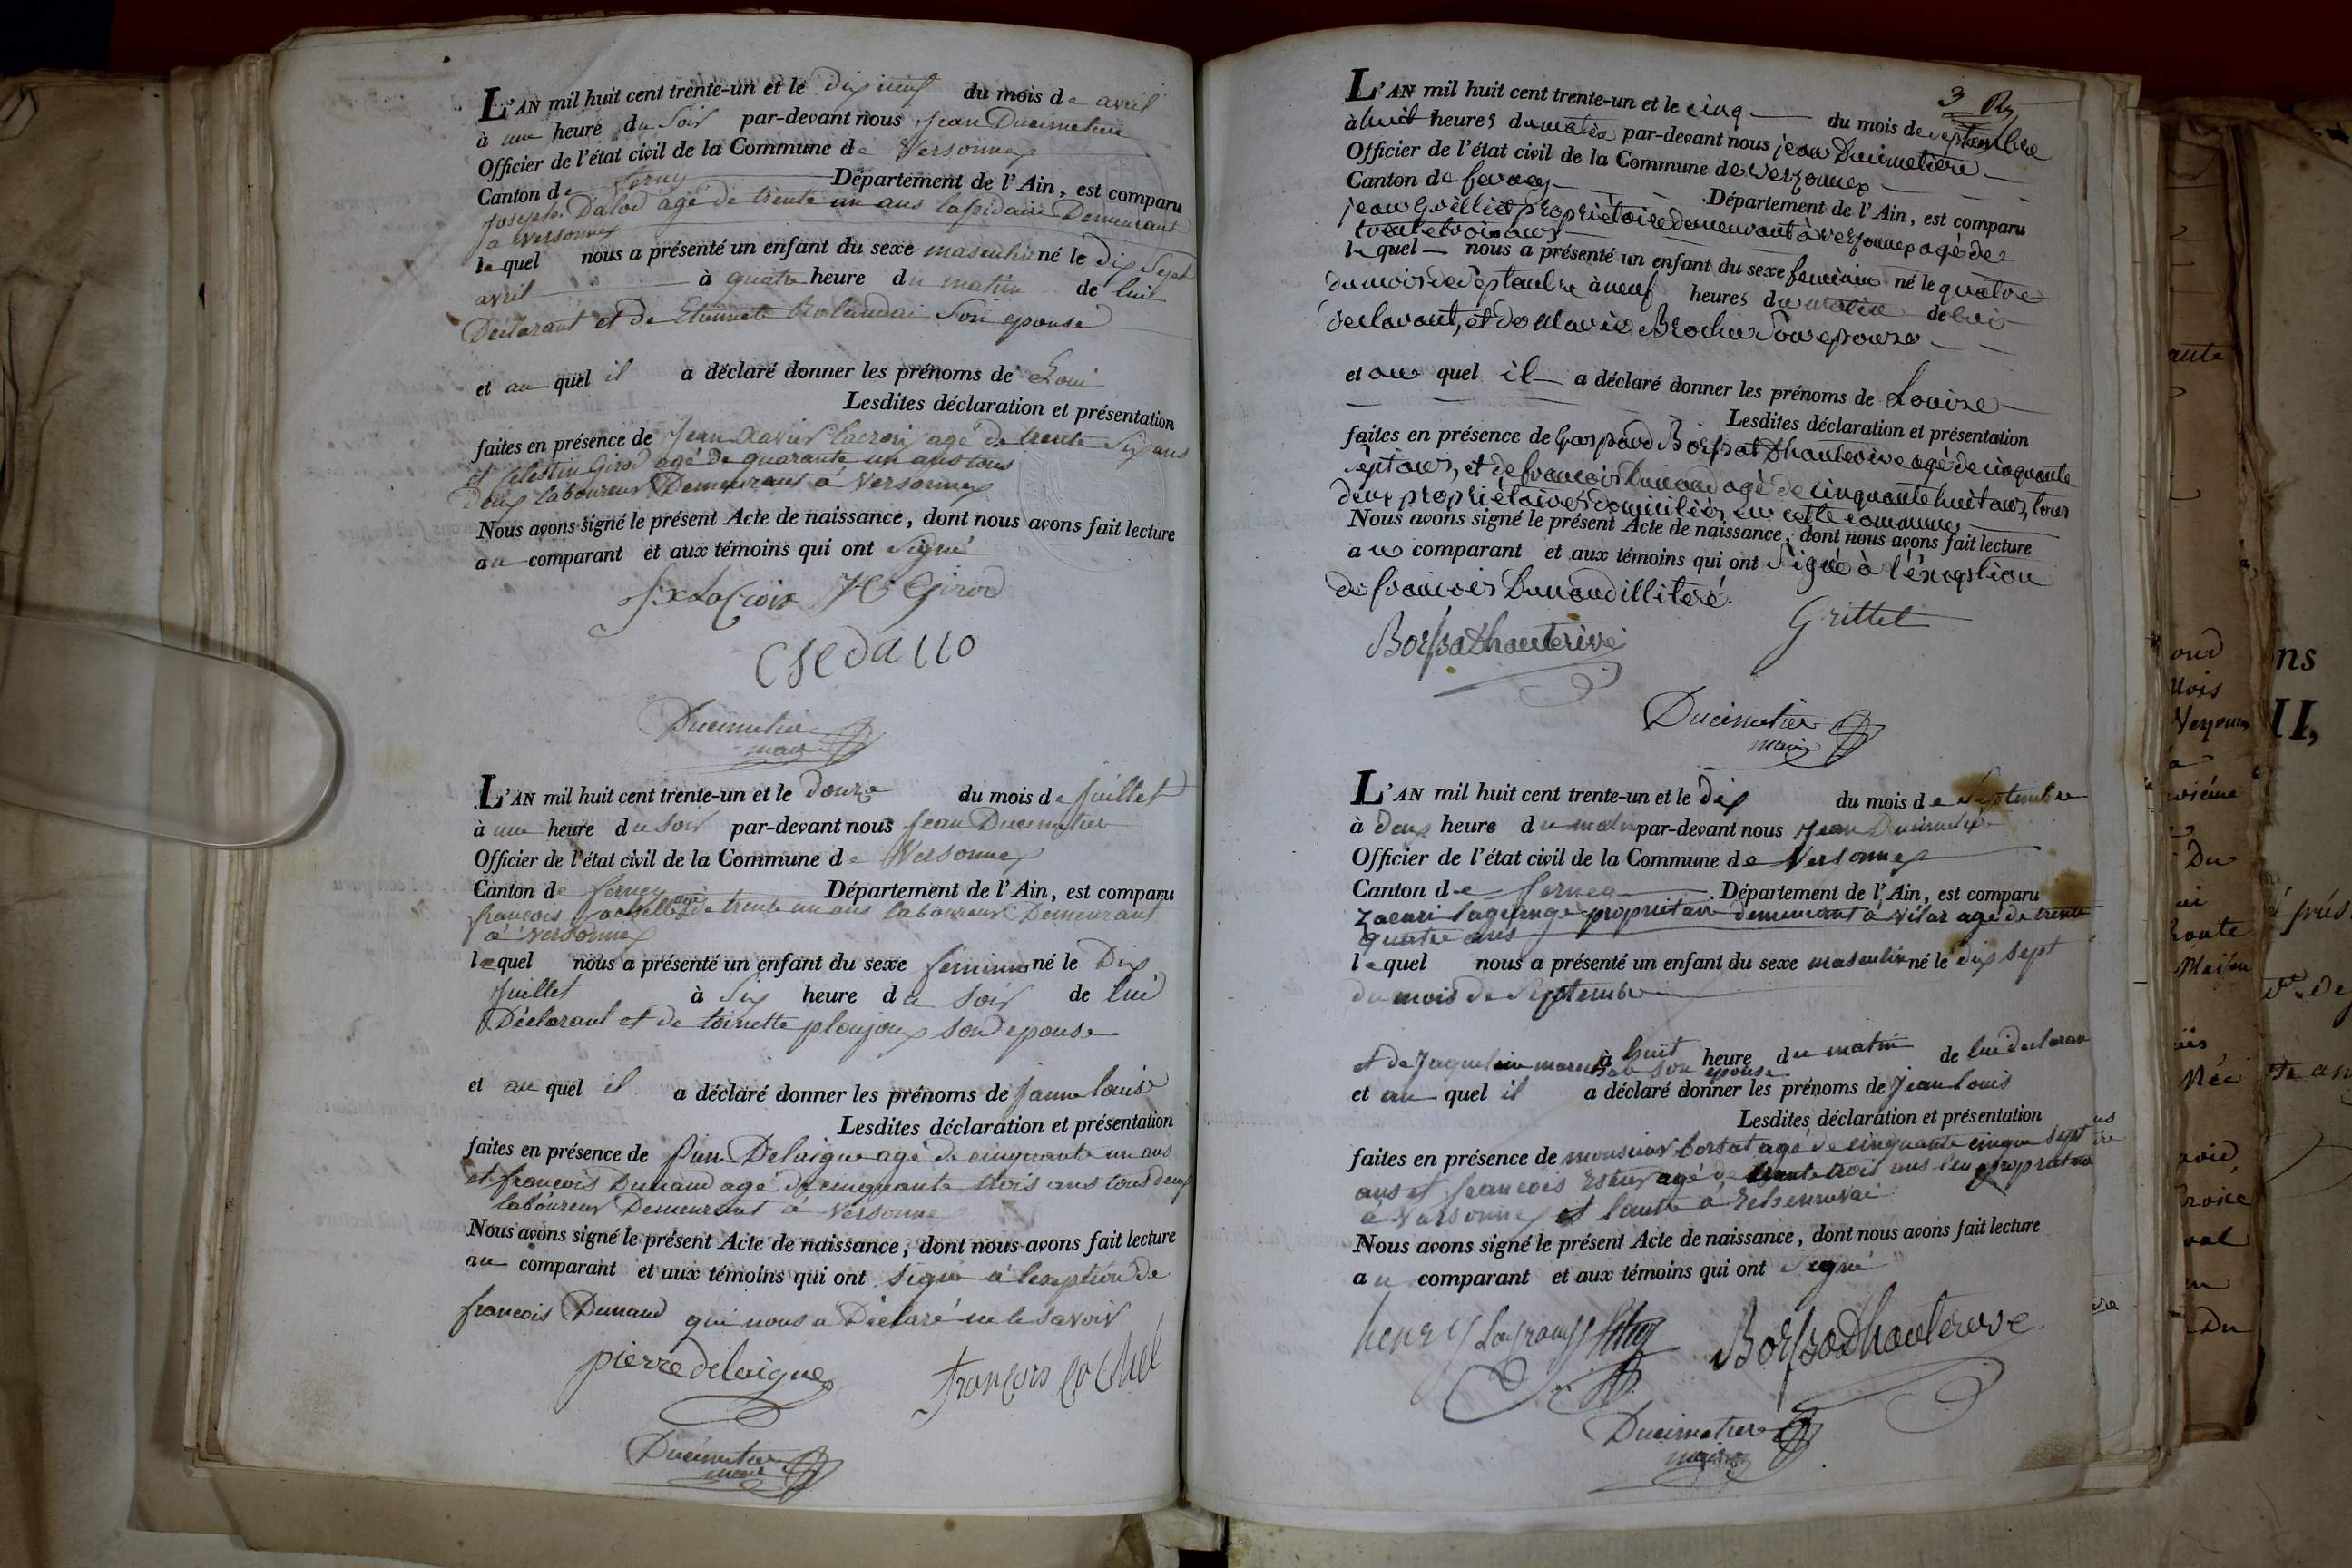 L'AN mil huit cent trente-un et le dix neuf du mois de avril
à une heure du soir par-devant nous Jean Ducimetiere
Officier de l'état civil de la Commune de Versonnex
Canton de ferney Département de l'Ain, est comparu
joseph Dalod agé de trente un ans lapidaire Demeurant
a Versonnex
lequel nous a présenté un enfant du sexe masculin né le Dix Sept
avril à quatre heure du matin de lui
Déclarant et de Etiennete Rolandai Son epouse
et au quel il a déclaré donner les prénoms de Loui
Lesdites déclaration et présentation
faites en présence de Jean Xavier lacroix agé de trente Six ans
et Celestin Girod agé de quarante un ans tous
deux laboureur Demeurant à Versonnex
Nous avons signé le présent Acte de naissance, dont nous avons fait lecture
au comparant et aux témoins qui ont Signé
jx LaCroix JC Girod
Ducimetier
maire
L'AN mil huit cent trente-un et le douze du mois de Juillet
à une heure du soir par-devant nous Jean Ducimetier
Officier de l'état civil de la Commune de Versonnex
Canton de ferney Département de l'Ain, est comparu
francois gachelle agé de trente un ans laboureur Demeurant
à Versonnex
lequel nous a présenté un enfant du sexe feminin né le Dix
Juillet à Six heure du soir de lui
Déclarant et de toinette ploujoux son epouse
et au quel il a déclaré donner les prénoms de Janne louise
Lesdites déclaration et présentation
faites en présence de Pierre Delaigue agé de cinquante un ans
et francois Dunand agé de cinquante trois ans tous deux
laboureur Demeurant à Versonnex
Nous avons signé le présent Acte de naissance, dont nous avons fait lecture
au comparant et aux témoins qui ont signé à lexeption de
francois Dunand qui nous a Déclaré ne le savoir
pierre delaigue françois
Ducimetier
maire
3 
L'AN mil huit cent trente-un et le cinq du mois de septembre
à huit heures du matin par-devant nous jean Ducimetiere
Officier de l'état civil de la Commune de versonnex
Canton de ferney Département de l'Ain, est comparu
jean Grillet propriétaire demeurant à versonnex agé de
trente trois ans
lequel nous a présenté un enfant du sexe feminin né le quatre
du mois de septembre à neuf heures du matin de lui
declarant, et de Marie Brochu Son epouse
et au quel il a déclaré donner les prénoms de Louise
Lesdites déclaration et présentation
faites en présence de Gaspard Borssat Dhauterive agé de cinquante
sept ans, et de francois Dunand agé de cinquante huit ans, tous
deux propriétaires domiciliés en cette commune
Nous avons signé le présent Acte de naissance, dont nous avons fait lecture
au comparant et aux témoins qui ont Signé à l'exception
de francois Dunand illiteré.
Borssat Dhauterive Grillet
Ducimetier
maire
L'AN mil huit cent trente-un et le dix du mois de Septembre
à deux heure du matin par-devant nous Jean Ducimetier
Officier de l'état civil de la Commune de Versonnex
Canton de ferney Département de l'Ain, est comparu
Zacari lagrange propriétaire demeurant à Vilar agé de trente
quatre ans
lequel nous a présenté un enfant du sexe masculin né le dix sept
du mois de Septembre
à huit heure du matin de lui declarant
et de Jaqueline son epouse
et au quel il a déclaré donner les prénoms de Jean louis
Lesdites déclaration et présentation
faites en présence de monsieur borsat agé de cinquante cinque sept
ans et francois agé de trente trois ans propriétaire
à Versonnex et lautre à Echenevai
Nous avons signé le présent Acte de naissance, dont nous avons fait lecture
au comparant et aux témoins qui ont Signé
henry Lagrange Borssat Dhauterive
Ducimetier
maire